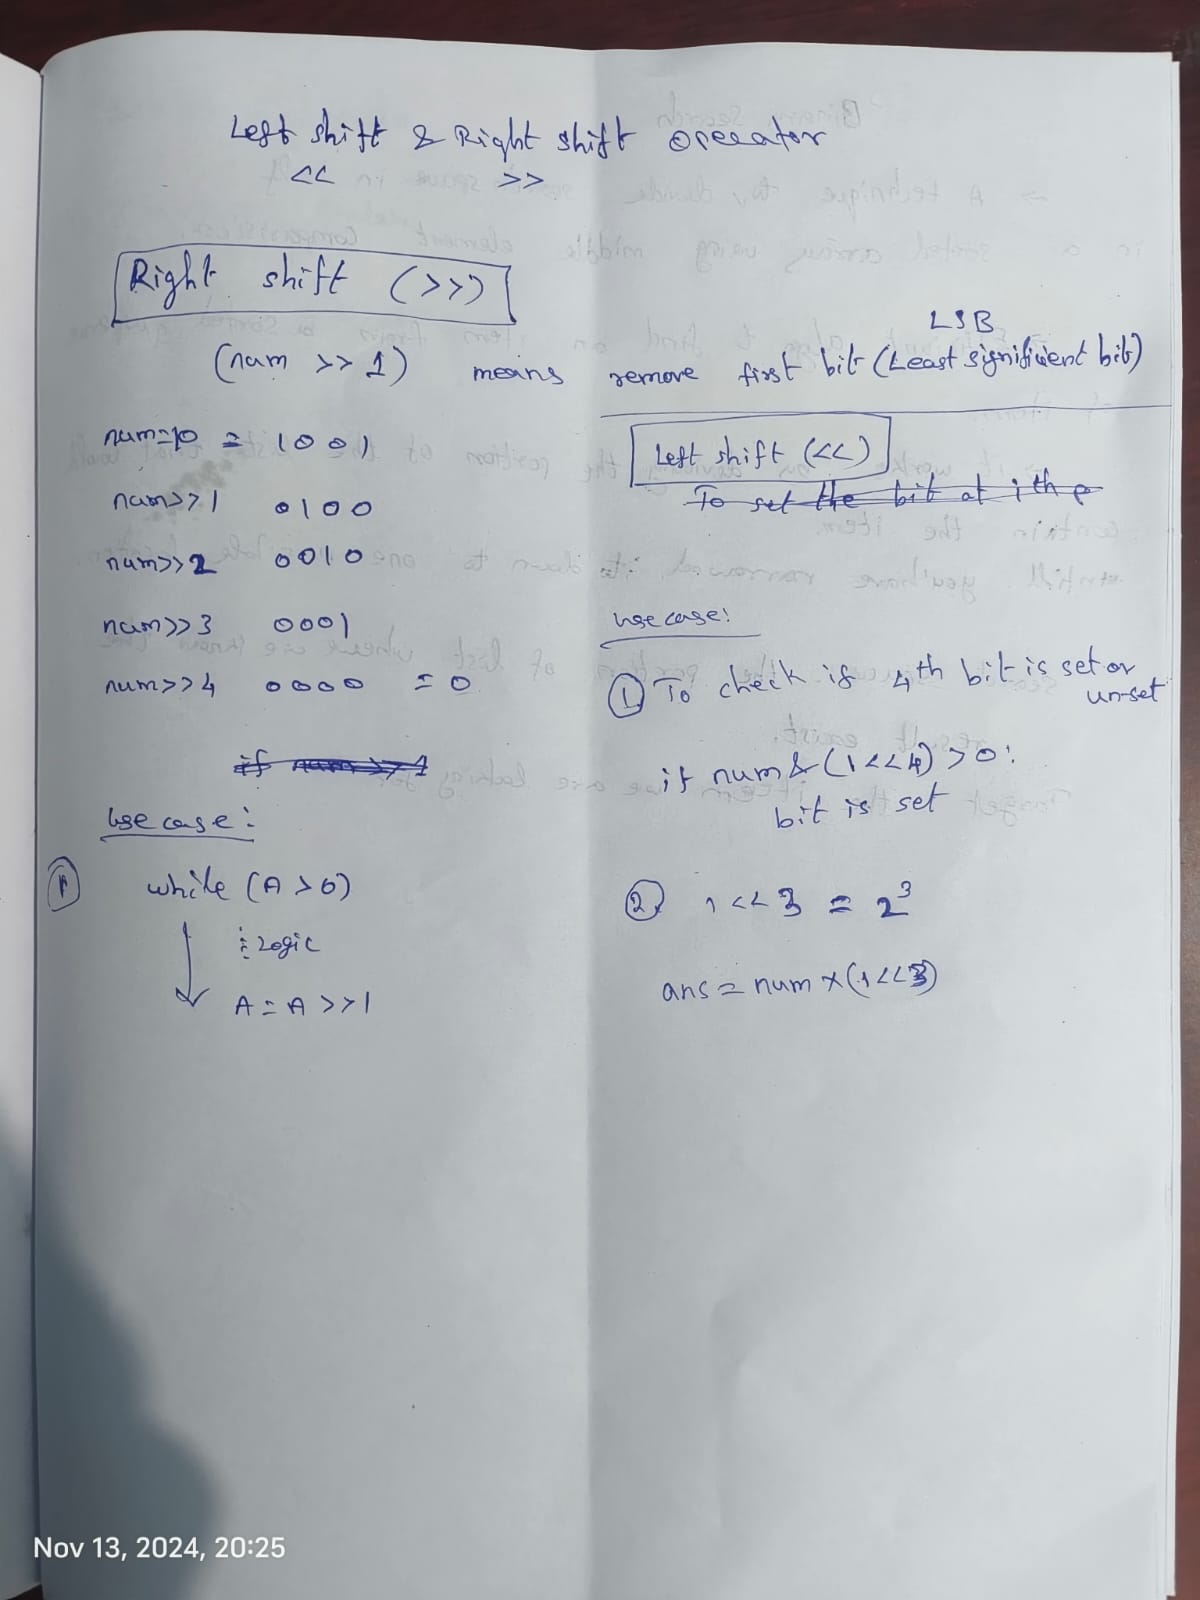 Left shift & Right shift operator
<< >>
Right shift (>>)
LSB
(num >> 1) means remove first bit (Least significient bit)
num=10 = 1001
num>>1 0100
num>>2 0010
num>>3 0001
num>>4 0000 = 0
if num >> 1
Use case:
1 while (A > 0)
: Logic
A = A >> 1
Left shift (<<)
To set the bit at ith p
Use case:
1 To check if 4th bit is set or
un-set
if num & (1<<4) > 0:
bit is set
2 1 << 3 = 2³
ans = num x (1<<3)
Nov 13, 2024, 20:25